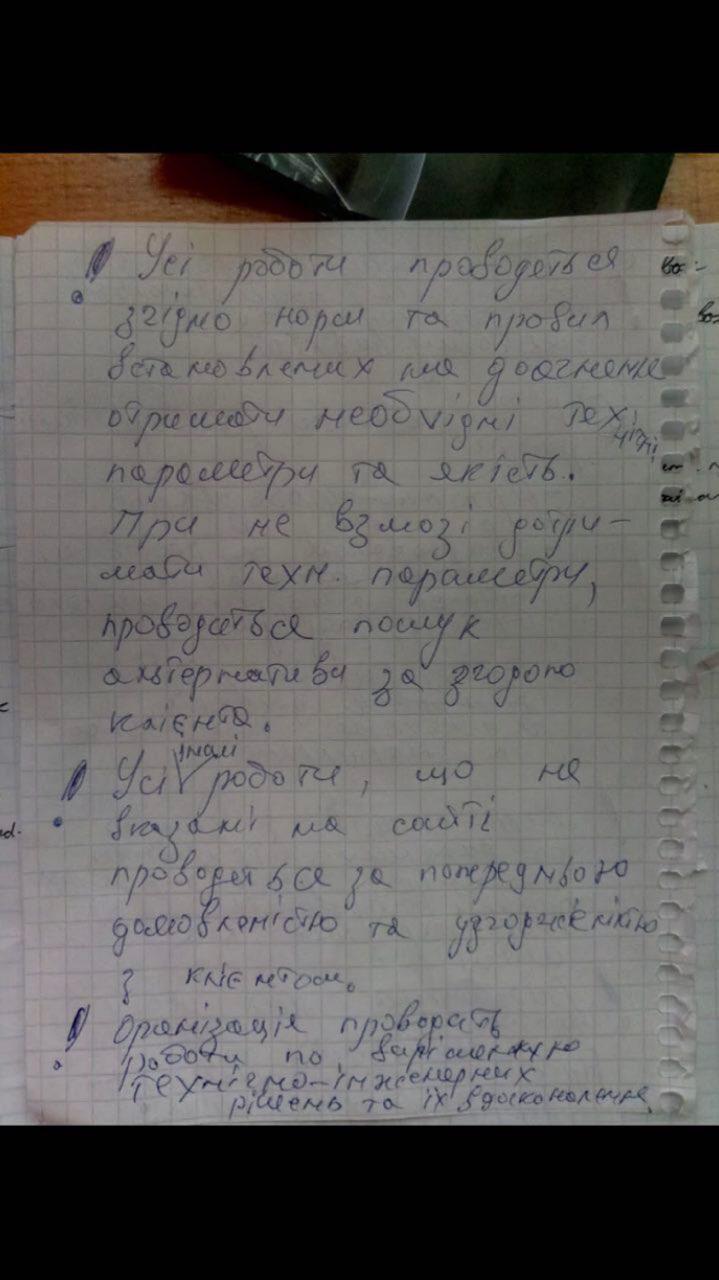 ! Усі роботи проводяться
згідно норм та правил
встановлених на досягнення
отримати необхідні техі
чічні
параметри та якість.
При не взмозі дотри-
мати техн. параметри,
проводиться пошук
альтернативи за згодою
клієнта.
інші
! Усі роботи, що не
вказані на сайті
проводяться за попередньою
домовленістю та
з клієнтом.
! Організація проводить
роботи по
технічно-інженерних
рішень та їх вдосконалення